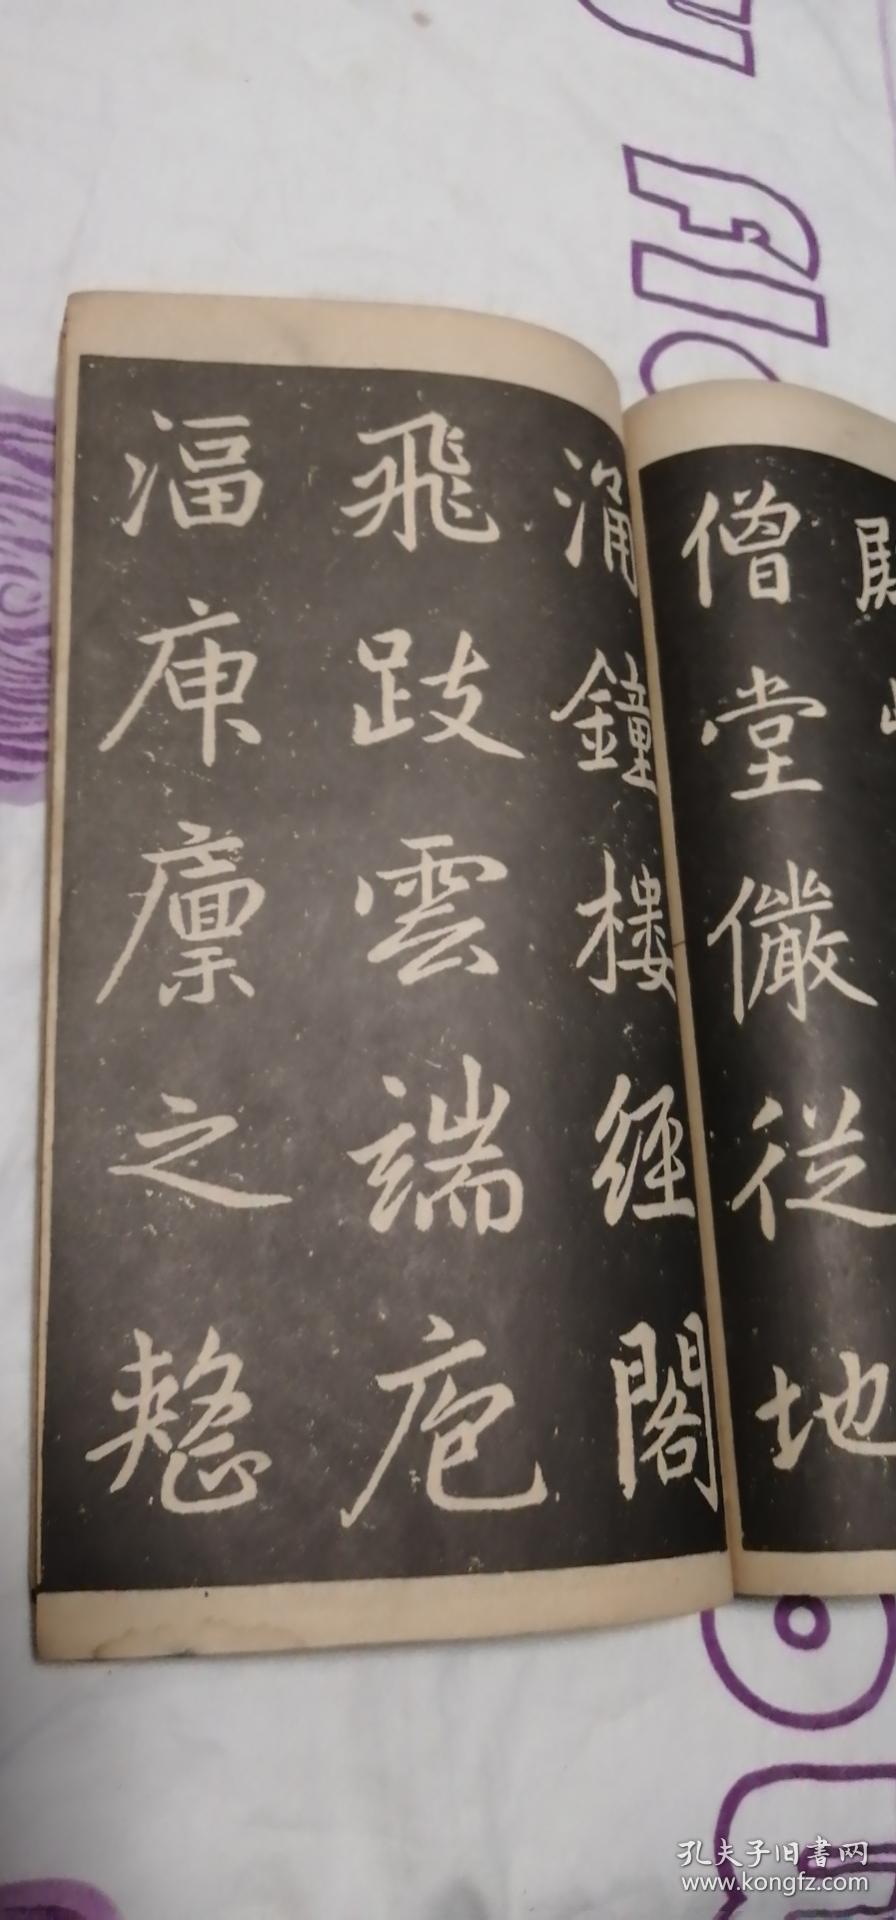 僧堂儼從地
涌鐘樓經閣
飛跂雲端庖
湢庫廩之整
孔夫子旧書网
www.kongfz.com